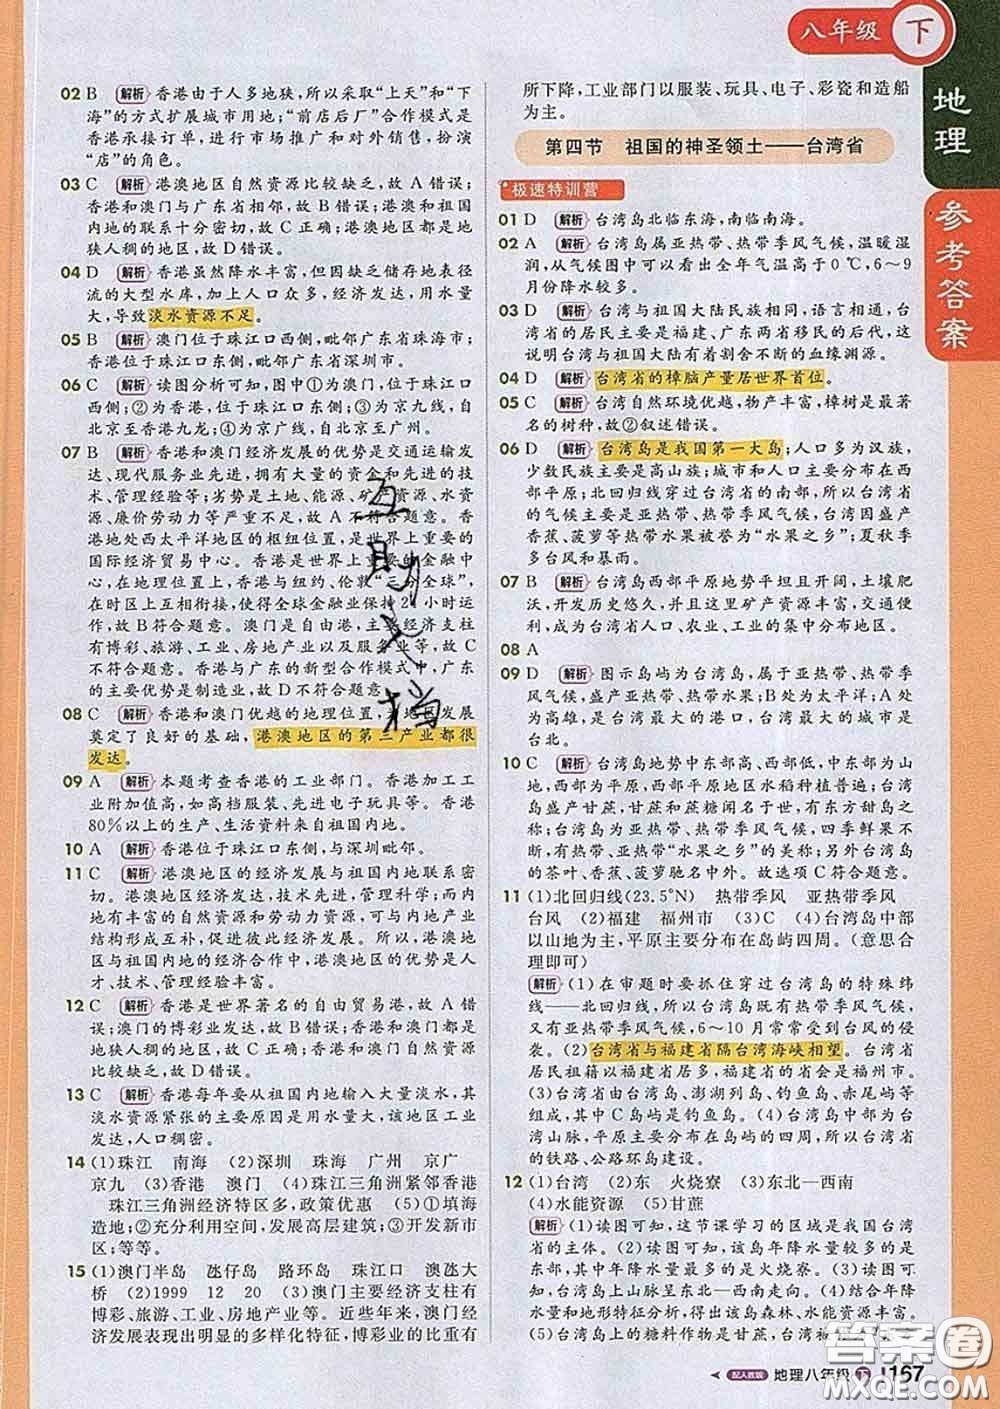 八年级 下
地理
参考答案
02 B 解析 香港由于人多地狭,所以采取“上天”和“下
海”的方式扩展城市用地;“前店后厂”合作模式是
香港承接订单、进行市场推广和对外销售,扮演
“店”的角色。
03 C 解析 港澳地区自然资源比较缺乏,故 A 错误;
香港和澳门与广东省相邻,故 B 错误;港澳和祖国
内地的联系十分密切,故 C 正确;港澳地区都是地
狭人稠的地区,故 D 错误。
04 D 解析 香港虽然降水丰富,但因缺乏储存地表径
流的大型水库,加上人口众多,经济发达,用水量
大,导致淡水资源不足。
05 B 解析 澳门位于珠江口西侧,毗邻广东省珠海市;
香港位于珠江口东侧,毗邻广东省深圳市。
06 C 解析 读图分析可知,图中①为澳门,位于珠江口
西侧;②为香港,位于珠江口东侧;③为京九线,自
北京至香港九龙;④为京广线,自北京至广州。
07 B 解析 香港和澳门经济发展的优势是交通运输发
达、现代服务业先进,拥有大量的资金和先进的技
术、管理经验等;劣势是土地、能源、矿产资源、水资
源、廉价劳动力等严重不足,故 A 不符合题意。
香港地处西太平洋地区的枢纽位置,是世界上重要的
国际经济贸易中心。香港是世界上重要的金融中
心,在地理位置上,香港与纽约、伦敦“三分全球”,
在时区上互相衔接,使得全球金融业保持24小时运
作,故 B 符合题意。澳门是自由港,主要经济支柱
有博彩、旅游、工业、房地产业以及服务业等,故 C
不符合题意。香港与广东的新型合作模式中,广东
的主要优势是制造业,故 D 不符合题意。
08 C 解析 香港和澳门优越的地理位置,为地区发展
奠定了良好的基础,港澳地区的第三产业都很
发达。
09 A 解析 本题考查香港的工业部门。香港加工工
业附加值高,如高档服装、先进电子玩具等。香港
80%以上的生产、生活资料来自祖国内地。
10 A 解析 香港位于珠江口东侧,与深圳毗邻。
11 C 解析 港澳地区的经济发展与祖国内地联系密
切。港澳地区经济发达,技术先进,管理科学;而内
地有丰富的自然资源和劳动力资源,可与内地产业
结构形成互补,促进彼此经济发展。所以,港澳地
区在与祖国内地的经济合作中,港澳地区的优势是人
才、技术、管理经验丰富。
12 C 解析 香港是世界著名的自由贸易港,故 A 错
误;澳门的博彩业发达,故 B 错误;香港和澳门都是
地狭人稠的地区,故 C 正确;香港和澳门自然资源
比较贫乏,故 D 错误。
13 C 解析 香港每年要从祖国内地输入大量淡水,其
淡水资源紧张的主要原因是用水量大,该地区工业
发达,人口稠密。
14 (1)珠江 南海 (2)深圳 珠海 广州 京广
京九 (3)香港 澳门 (4)珠江三角洲紧邻香港
珠江三角洲经济特区多,政策优惠 (5)①填海
造地;②充分利用空间,发展高层建筑;③开发新市
区;等等。
15 (1)澳门半岛 氹仔岛 路环岛 珠江口 澳氹大
桥 (2)1999 12 20 (3)澳门主要经济支柱有
博彩、旅游、工业、房地产业等 近些年来,澳门经
济发展表现出明显的多样化特征,博彩业的比重有
所下降,工业部门以服装、玩具、电子、彩瓷和造船
为主。
第四节 祖国的神圣领土——台湾省
极速特训营
01 D 解析 台湾岛北临东海,南临南海。
02 A 解析 台湾岛属亚热带、热带季风气候,温暖湿
润,从气候图中可以看出全年气温高于0℃,6~9
月份降水较多。
03 D 解析 台湾与祖国大陆民族相同,语言相通,台
湾省的居民主要是福建、广东两省移民的后代,这
说明台湾与祖国大陆有着割舍不断的血缘渊源。
04 D 解析 台湾省的樟脑产量居世界首位。
05 C 解析 台湾自然环境优越,物产丰富,樟树是最著
名的树种,故②叙述错误。
06 D 解析 台湾岛是我国第一大岛;人口多为汉族,
少数民族主要是高山族;城市和人口主要分布在西
部平原;北回归线穿过台湾省的南部,所以台湾省
的气候主要是亚热带、热带季风气候;台湾省因盛产
香蕉、菠萝等热带水果被誉为“水果之乡”;夏秋季
多台风和暴雨。
07 B 解析 台湾岛西部平原地势平坦且开阔,土壤肥
沃,开发历史悠久,并且这里矿产资源丰富,交通便
利,成为台湾省人口、农业、工业的集中分布地区。
08 A
09 D 解析 图示岛屿为台湾岛,属于亚热带、热带季
风气候,盛产亚热带、热带水果;B处为太平洋;A处
为高雄,是台湾最大的港口,台湾最大的城市是
台北。
10 C 解析 台湾岛地势东部高,西部低,中东部为山
地,西部为平原,西部平原地区水稻种植普遍;台湾
岛盛产甘蔗,甘蔗和蔗糖闻名于世,有东方甜岛之
称;台湾岛为亚热带、热带季风气候,四季鲜果不
断,有热带、亚热带“水果之乡”的美称;另外台湾岛
的茶叶、香蕉、菠萝驰名中外。故选项 C 符合题意。
11 (1)北回归线(23.5°N) 热带季风 亚热带季风
台风 (2)福建 福州市 (3)C (4)台湾岛中部
以山地为主,平原主要分布在岛屿四周。(意思合
理即可)
解析 (1)在审题时要抓住穿过台湾岛的特殊纬
线——北回归线,所以台湾岛既有热带季风气候,
又有亚热带季风气候,6~10 月常常受到台风的侵
袭。(2)台湾省与福建省隔台湾海峡相望。台湾省
居民祖籍以福建省居多,福建省的省会是福州市。
(3)台湾省由台湾岛、澎湖列岛、钓鱼岛、赤尾屿等
组成,其中 C 岛屿是钓鱼岛。(4)台湾岛中部为台
湾山脉,平原主要分布在岛屿的四周,所以台湾省
的铁路、公路环岛建设。
12 (1)台湾 (2)东 火烧寮 (3)东北—西南
(4)水能资源 (5)甘蔗
解析 (1)读图可知,这节课学习的区域是我国台湾
省的主体。(2)读图可知,该岛年降水量较多的是
东部,年降水量最多的是火烧寮。(3)读图可知,该
岛年降水量呈东北—西南走向。(4)结合年降水
量和地形特征分析,得出该岛森林、水力资源丰富。
(5)台湾岛上的糖料作物是甘蔗,台湾
配人教版 地理八年级 下 167
互助文档
答案圈
MXQE.COM